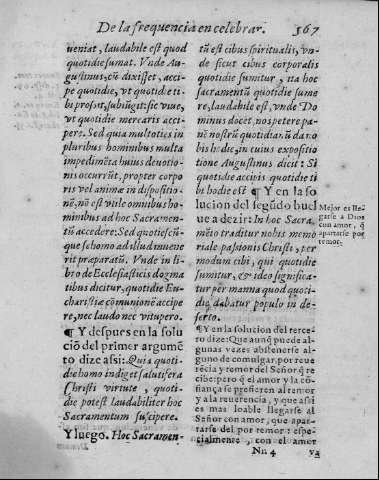 De la frequencia en celebrar. 567
ueniat, laudabile est quod
quotidie sumat. Vnde Au-
gustinus, cũ dixisset, acci-
pe quotidie, vt quotidie ti-
bi prosit, subiũgit: sic viue,
vt quotidie mercaris acci-
pere. Sed quia multoties in
pluribus hominibus multa
impedimẽta huius deuotio-
nis occurrũt, propter corpo
ris vel animæ in dispositio-
nẽ, nõ est vtile omnibus ho-
minibus ad hoc Sacramen-
tũ accedere: Sed quotiescũ-
que se homo ad illud inuene
rit præparatũ. Vnde in li-
bro de Ecclesiasticis dogma
tibus dicitur, quotidie Eu-
charistiæ cõmunionẽ accipe
re, nec laudo nec vitupero.
¶ Y despues en la solu
ciõ del primer argumẽ
to dize assi: Quia quoti-
die homo indiget salutifera
Christi virtute, quoti-
die potest laudabiliter hoc
Sacramentum suscipere.
Y luego. Hoc Sacramen-
tũ est cibus spiritualis, vn-
de sicut cibus corporalis
quotidie sumitur, ita hoc
sacramentũ quotidie sume
re, laudabile est, vnde Do
minus docet, nos petere pa-
nẽ nostrũ quotidianũ da no
bis hodie, in cuius expositio
tione Augustinus dicit: Si
quotidie accipis quotidie ti
bi hodie est ¶ Y en la so
lucion del segũdo buel
ue a dezir: In hoc Sacra-
mẽto traditur nobis memo
riale passionis Christi, per
modum cibi, qui quotidie
sumitur, & ideo significa-
tur per manna quod quoti-
die dabatur populo in de-
serto.
Mejor es lle-
garse a Dios
con amor, q̃
apartarse por
temor.
¶ Y en la solucion del terce-
ro dize: Que aunq̃ puede al-
gunas vezes abstenerse al-
guno de comulgar, por reue
rẽcia y temor del Señor q̃ re
cibe: pero q̃ el amor y la cõ-
fiança se prefieren al temor
y a la reuerencia, y que assi
es mas loable llegarse al
Señor con amor, que apar-
tarse del por temor: espe-
cialmente, con el amor
Nn 4 va